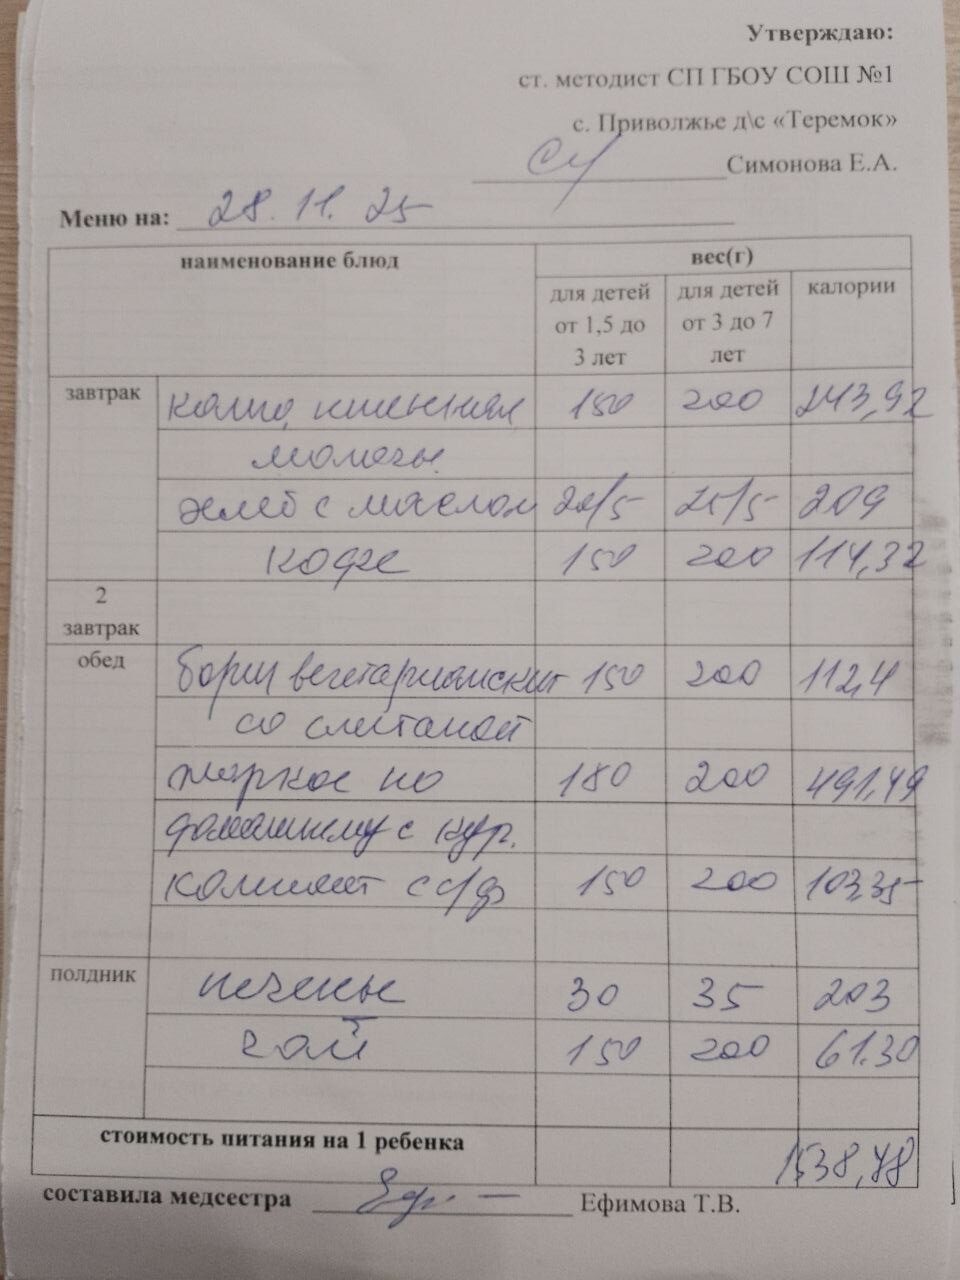 Утверждаю:
ст. методист СП ГБОУ СОШ №1
с. Приволжье д\с «Теремок»
Симонова Е.А.
Меню на: 28.11.25
наименование блюд вес(г)
для детей от 1,5 до 3 лет для детей от 3 до 7 лет калории
завтрак каша пшенная 150 200 243,92
молочн.
хлеб с маслом 20/5 25/5 209
кофе 150 200 114,32
2 завтрак
обед борщ вегетарианский 150 200 112,4
со сметаной
жаркое по 180 200 491,49
домашнему с кур.
компот с с/ф 150 200 103,35
полдник печенье 30 35 203
чай 150 200 61.30
стоимость питания на 1 ребенка 1538,78
составила медсестра Ефимова Т.В.